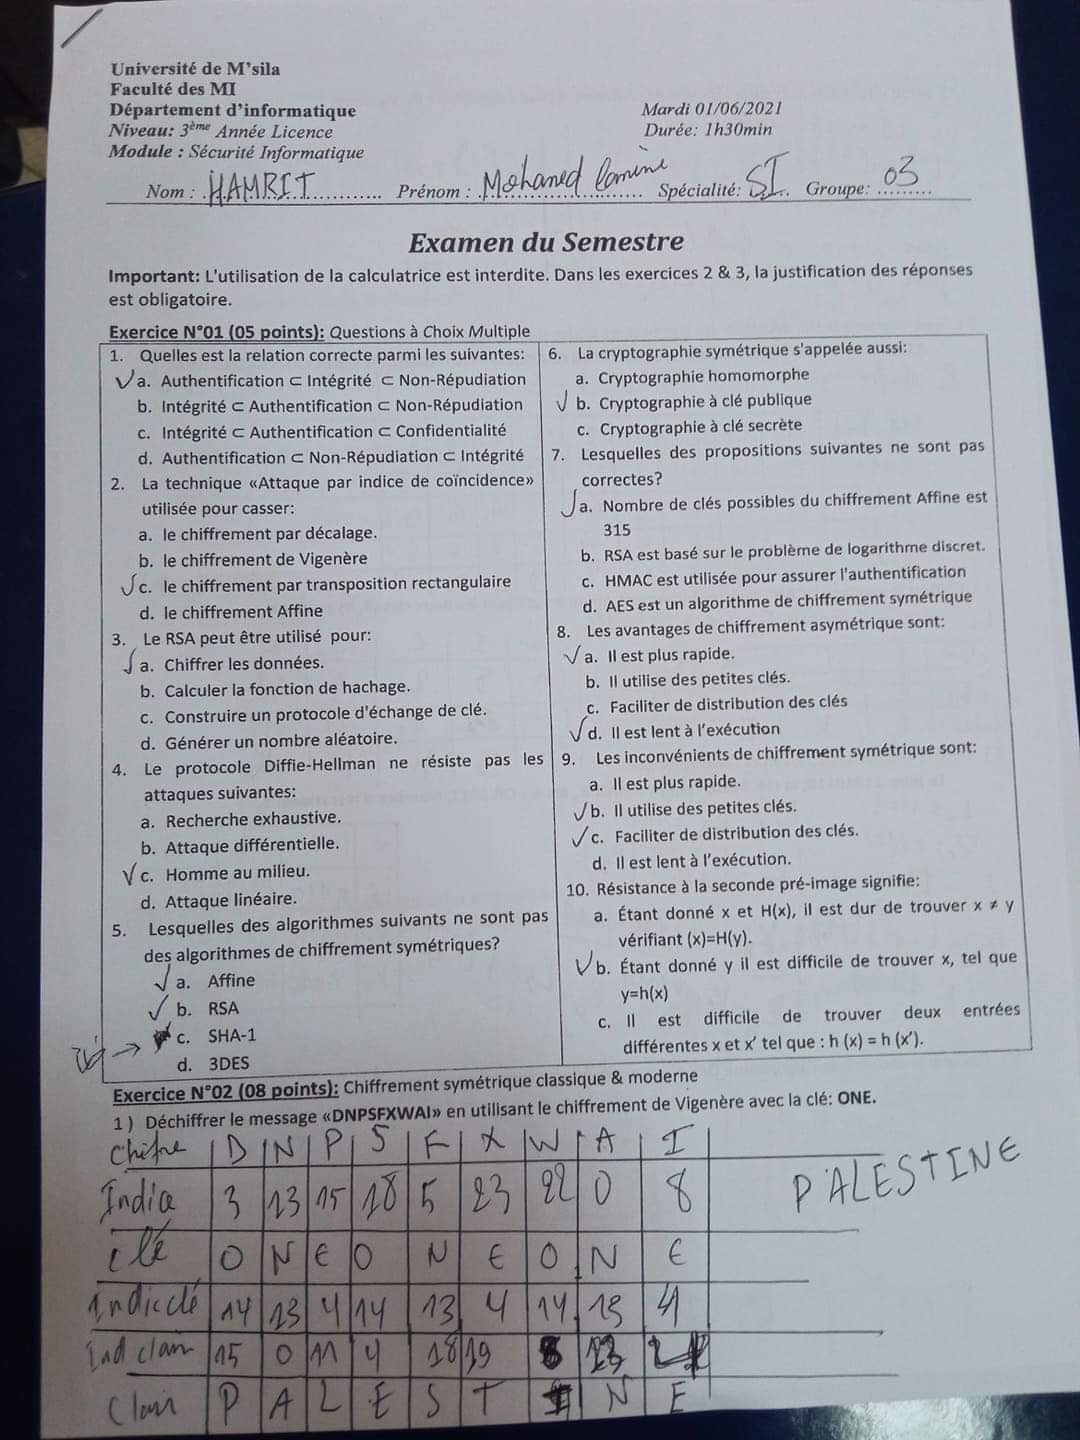 Université de M'sila
Faculté des MI
Département d'informatique
Mardi 01/06/2021
Niveau: 3ème Année Licence
Durée: 1h30min
Module : Sécurité Informatique
Nom : HAMRIT Prénom : Mohamed lamine Spécialité: SI Groupe: 03
Examen du Semestre
Important: L'utilisation de la calculatrice est interdite. Dans les exercices 2 & 3, la justification des réponses
est obligatoire.
Exercice N°01 (05 points): Questions à Choix Multiple
1. Quelles est la relation correcte parmi les suivantes:
a. Authentification ⊂ Intégrité ⊂ Non-Répudiation
b. Intégrité ⊂ Authentification ⊂ Non-Répudiation
c. Intégrité ⊂ Authentification ⊂ Confidentialité
d. Authentification ⊂ Non-Répudiation ⊂ Intégrité
2. La technique «Attaque par indice de coïncidence»
utilisée pour casser:
a. le chiffrement par décalage.
b. le chiffrement de Vigenère
c. le chiffrement par transposition rectangulaire
d. le chiffrement Affine
3. Le RSA peut être utilisé pour:
a. Chiffrer les données.
b. Calculer la fonction de hachage.
c. Construire un protocole d'échange de clé.
d. Générer un nombre aléatoire.
4. Le protocole Diffie-Hellman ne résiste pas les
attaques suivantes:
a. Recherche exhaustive.
b. Attaque différentielle.
c. Homme au milieu.
d. Attaque linéaire.
5. Lesquelles des algorithmes suivants ne sont pas
des algorithmes de chiffrement symétriques?
a. Affine
b. RSA
c. SHA-1
d. 3DES
6. La cryptographie symétrique s'appelée aussi:
a. Cryptographie homomorphe
b. Cryptographie à clé publique
c. Cryptographie à clé secrète
7. Lesquelles des propositions suivantes ne sont pas
correctes?
a. Nombre de clés possibles du chiffrement Affine est
315
b. RSA est basé sur le problème de logarithme discret.
c. HMAC est utilisée pour assurer l'authentification
d. AES est un algorithme de chiffrement symétrique
8. Les avantages de chiffrement asymétrique sont:
a. Il est plus rapide.
b. Il utilise des petites clés.
c. Faciliter de distribution des clés
d. Il est lent à l'exécution
9. Les inconvénients de chiffrement symétrique sont:
a. Il est plus rapide.
b. Il utilise des petites clés.
c. Faciliter de distribution des clés.
d. Il est lent à l'exécution.
10. Résistance à la seconde pré-image signifie:
a. Étant donné x et H(x), il est dur de trouver x ≠ y
vérifiant (x)=H(y).
b. Étant donné y il est difficile de trouver x, tel que
y=h(x)
c. Il est difficile de trouver deux entrées
différentes x et x' tel que : h (x) = h (x').
Exercice N°02 (08 points): Chiffrement symétrique classique & moderne
1 ) Déchiffrer le message «DNPSFXWAI» en utilisant le chiffrement de Vigenère avec la clé: ONE.
Chifre D N P S F X W A I
Indice 3 13 15 18 5 23 22 0 8
PALESTINE
clé O N E O N E O N E
Indic clé 14 13 4 14 13 4 14 13 4
Ind clair 15 0 11 4 18 19 8 13
Clair P A L E S T I N E